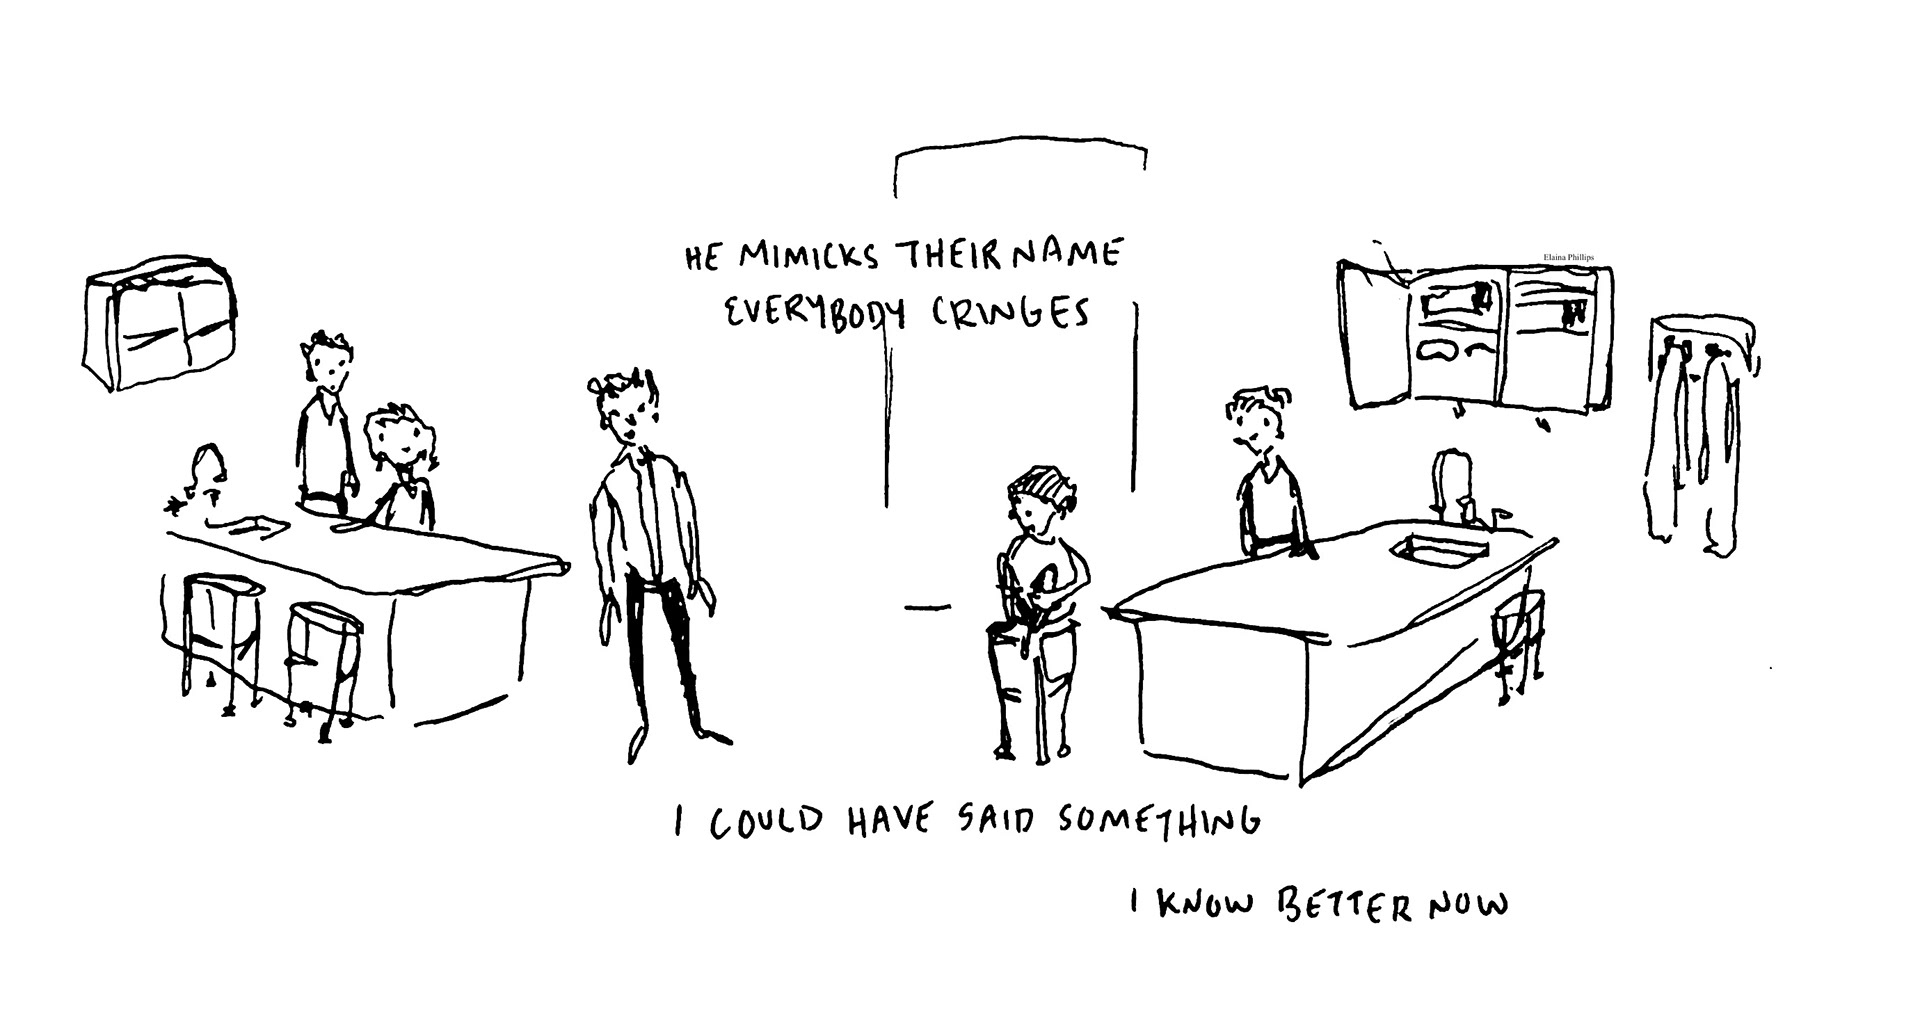 HE MIMICKS THEIR NAME
EVERYBODY CRINGES
Elaina Phillips
I COULD HAVE SAID SOMETHING
I KNOW BETTER NOW